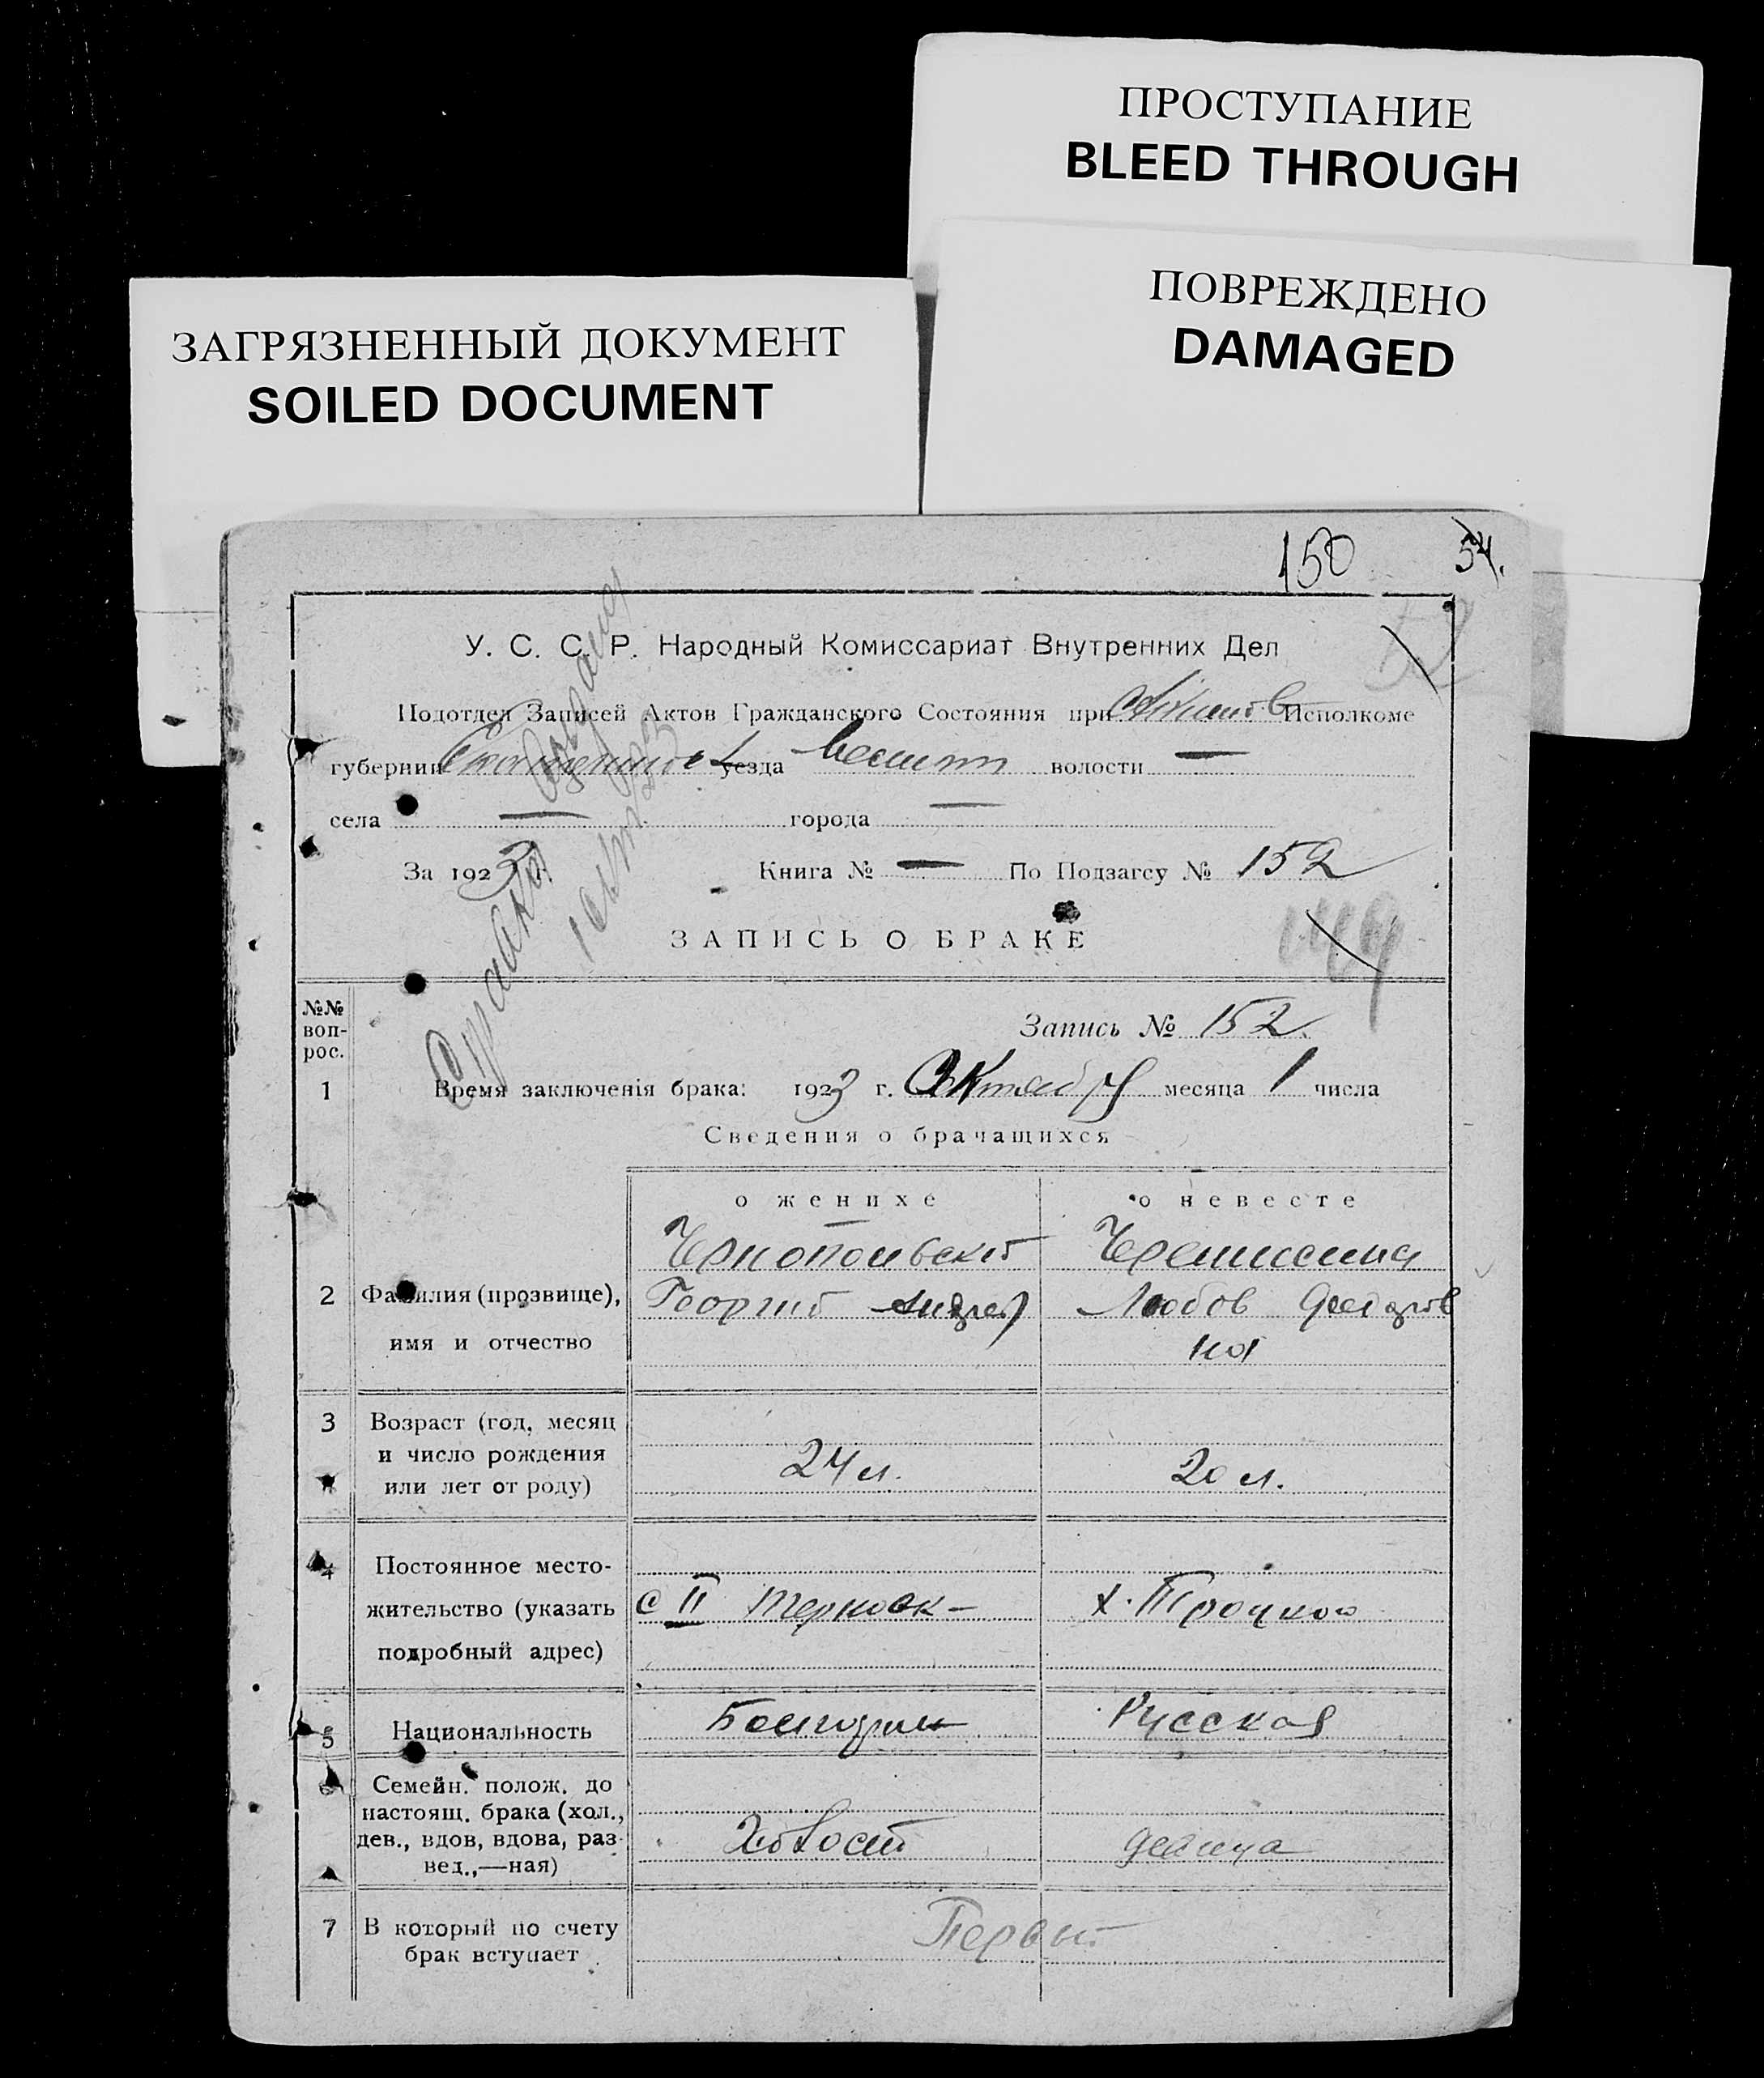 ПРОСТУПАНИЕ
BLEED THROUGH
ПОВРЕЖДЕНО
DAMAGED
ЗАГРЯЗНЕННЫЙ ДОКУМЕНТ
SOILED DOCUMENT
150 54.
52
У. С. С. Р. Народный Комиссариат Внутренних Дел
Подотдел Записей Актов Гражданского Состояния при Исполкоме
губернии уезда волости —
села — города —
За 1923 г. Книга № — По Подзагсу № 152
149
ЗАПИСЬ О БРАКЕ
Справка выдана
№№ воп-рос.
Запись № 152.
1 Время заключенія брака: 1923 г. Октября месяца 1 числа
Сведения о брачащихся
о женихе о невесте
2 Фамилия (прозвище),
имя и отчество
Чернопольский
Георгий Андрей
Черемисина
Любов Федоров
на
3 Возраст (год, месяц
и число рождения
или лет от роду)
24 л. 20 л.
4 Постоянное место-
жительство (указать
подробный адрес)
с II Терновк– х. Троцкого
5 Национальность Болгарин Русская
6 Семейн. полож. до
настоящ. брака (хол.,
дев., вдов, вдова, раз-
вед.,—ная)
Холост девица
7 В который по счету
брак вступает
Первый